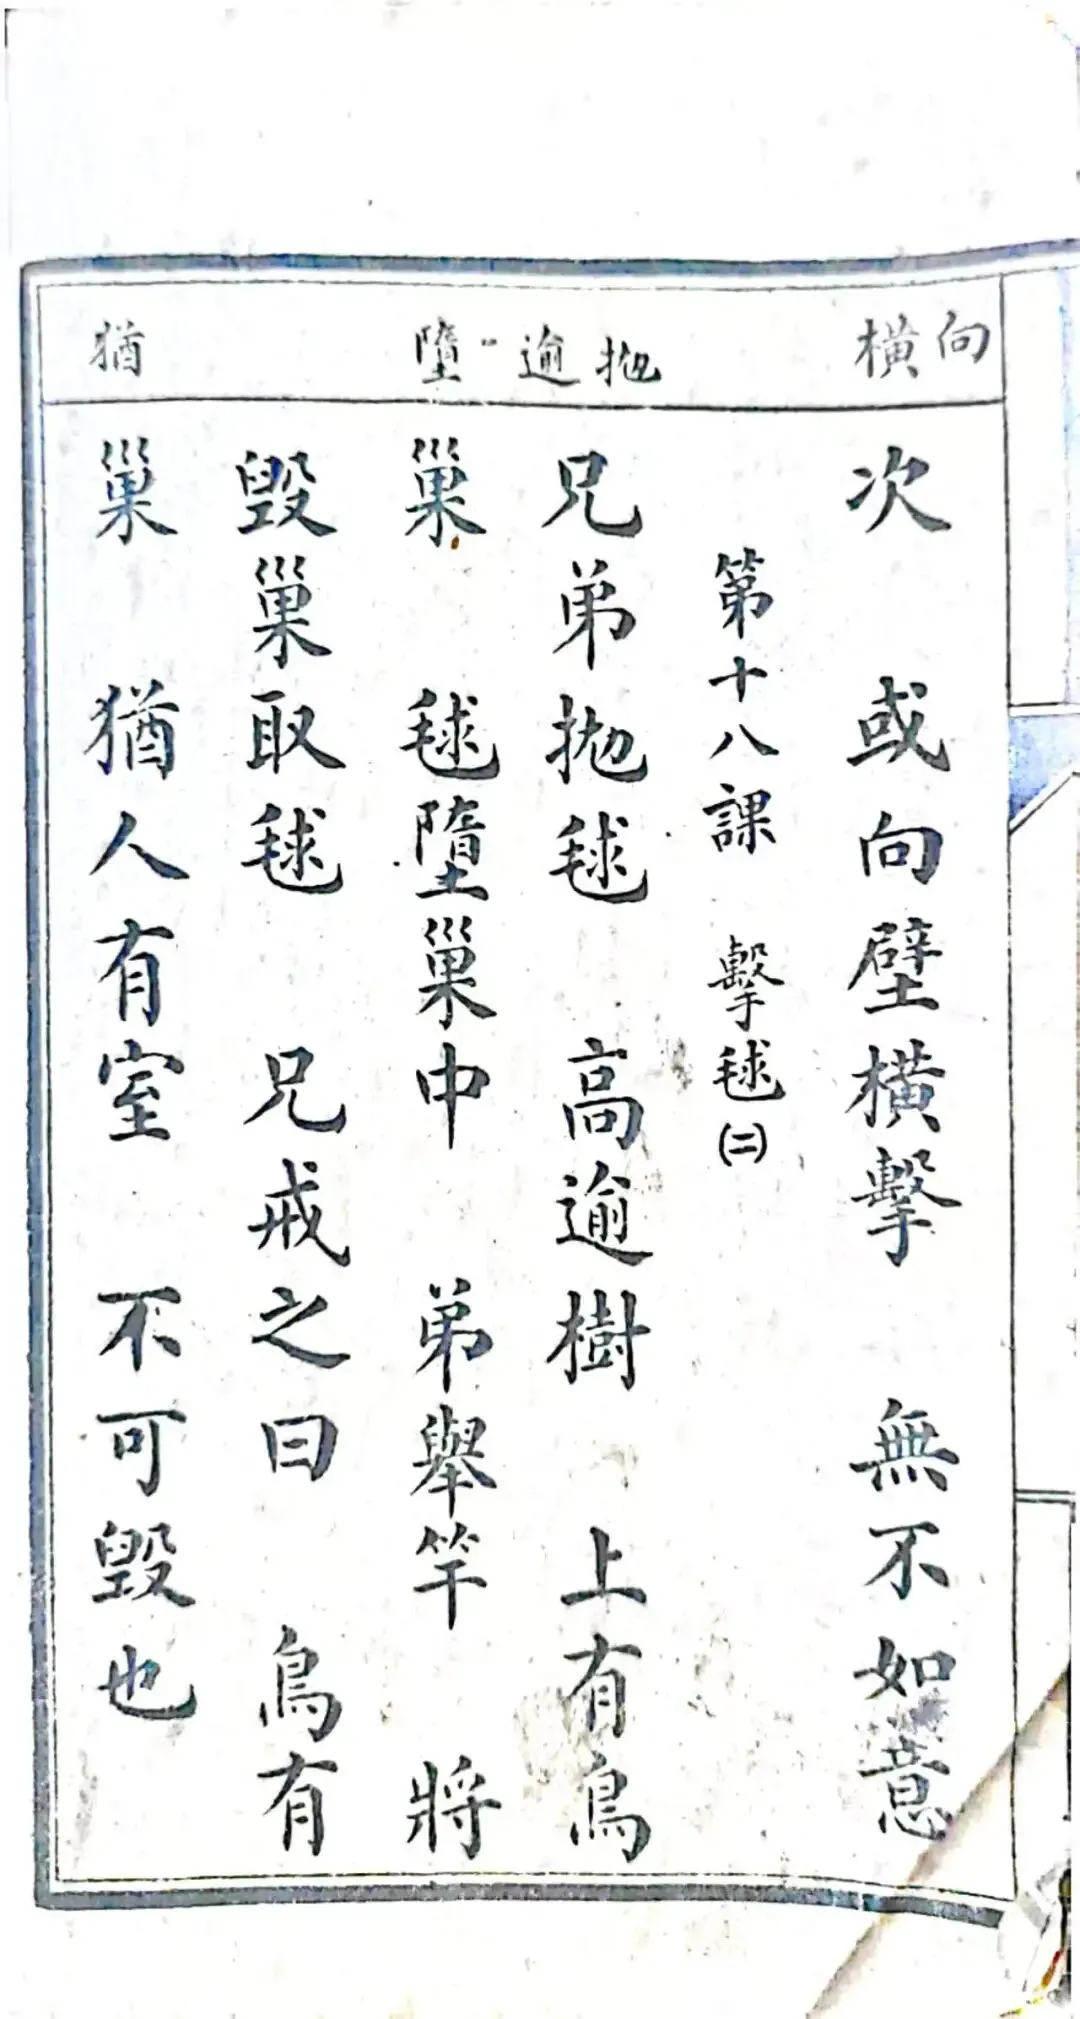 向橫
拋逾墮
猶
次　或向壁橫擊　無不如意
第十八課　擊毬㈡
兄弟拋毬　高逾樹　上有鳥
巢　毬墮巢中　弟舉竿　將
毀巢取毬　兄戒之曰　鳥有
巢　猶人有室　不可毀也